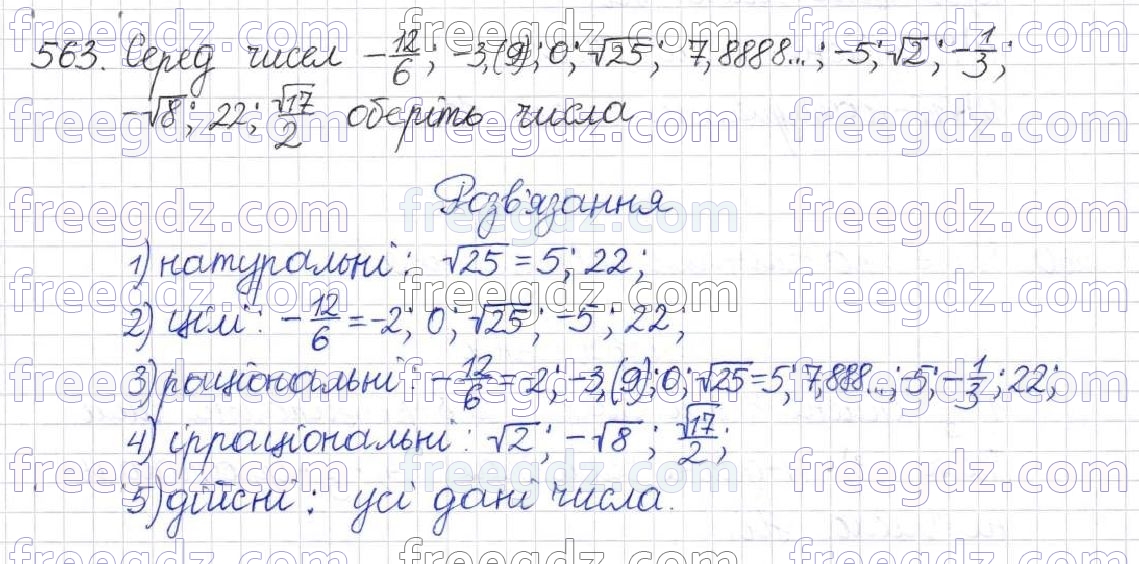 563. Серед чисел -12/6; -3,(9); 0; √25; 7,8888...; -5; √2; -1/3;
-√8; 22; √17/2 оберіть числа
Розв'язання
1) натуральні: √25 = 5; 22;
2) цілі: -12/6 = -2; 0; √25; -5; 22;
3) раціональні: -12/6 = -2; -3,(9); 0; √25 = 5; 7,888...; -5; -1/3; 22;
4) ірраціональні: √2; -√8; √17/2;
5) дійсні: усі дані числа.
freegdz.com freegdz.com freegdz.com
freegdz.com freegdz.com freegdz.com
freegdz.com freegdz.com freegdz.com
freegdz.com freegdz.com freegdz.com
freegdz.com freegdz.com freegdz.com
freegdz.com freegdz.com freegdz.com
freegdz.com freegdz.com freegdz.com